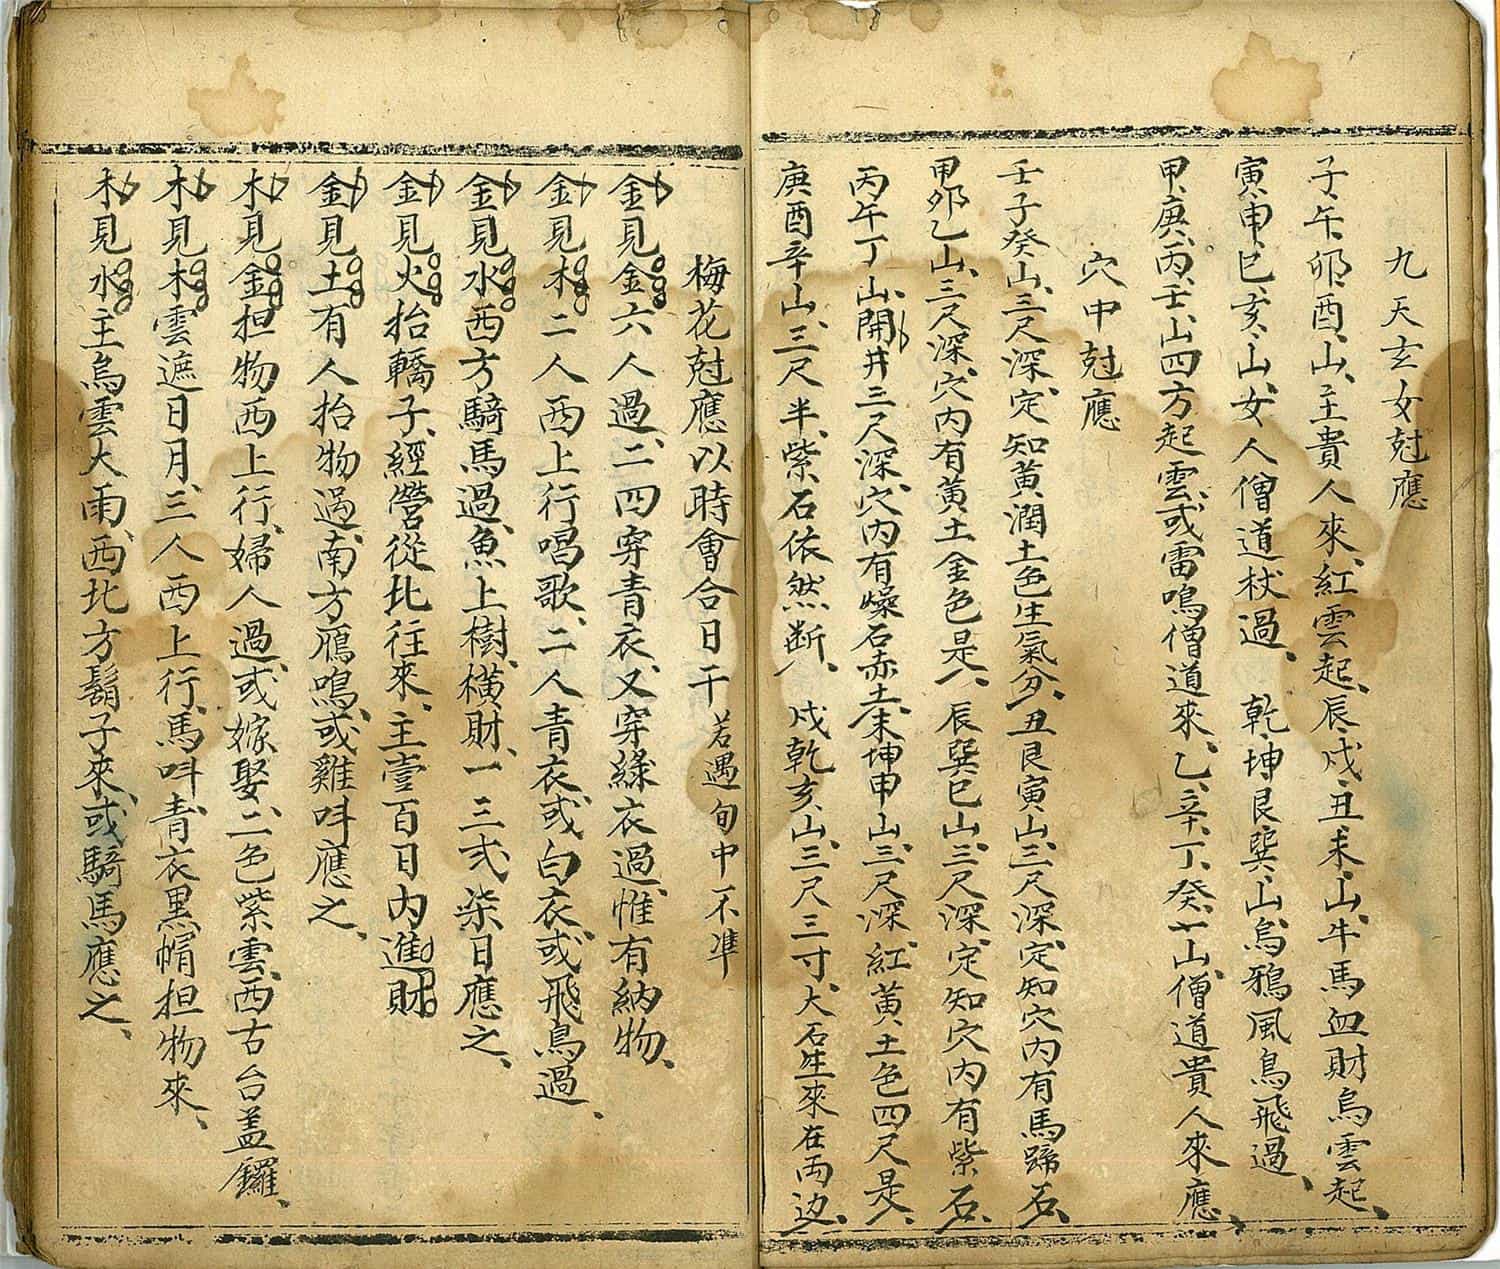 九天玄女尅應
子午卯酉山主貴人來紅雲起辰戌丑未山牛馬血財烏雲起
寅申巳亥山女人僧道杖過乾坤艮巽山烏鴉風鳥飛過
甲庚丙壬山四方起雲或雷鳴僧道來乙辛丁癸山僧道貴人來應
穴中尅應
壬子癸山三尺深定知黃潤土色生氣分丑艮寅山三尺深定知穴内有馬蹄石
甲卯乙山三尺深穴内有黃土金色是辰巽巳山三尺深定知穴内有紫石
丙午丁山開井三尺深穴内有燥石赤土未坤申山三尺深紅黃土色四尺是
庚酉辛山三尺半紫石依然断戌乾亥山三尺三寸大石生來在両边
梅花尅應以時會合日干若遇旬中不凖
金見金六人過二四穿青衣又穿綠衣過惟有納物
金見木二人西上行唱歌二人青衣或白衣或飛鳥過
金見水西方騎馬過魚上樹横財一三弍柒日應之
金見火抬轎子經營從北往來主壹百日内進財
金見土有人抬物過南方鴈鳴或雞呌應之
木見金担物西上行婦人過或嫁娶二色紫雲西古台盖鑼
木見木雲遮日月三人西上行馬呌青衣黑帽担物來
木見水主烏雲大雨西北方鬍子來或騎馬應之